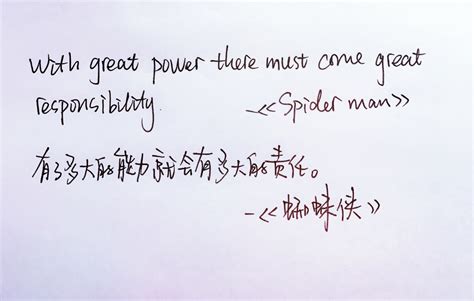 With great power there must come great
responsibility.
—《Spider man》
有多大的能力就会有多大的责任。
—《蜘蛛侠》